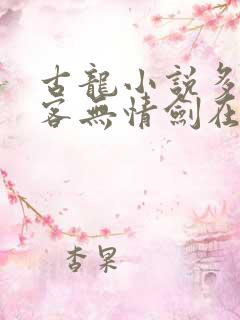 古龍小説多
客無情劍在
杏果